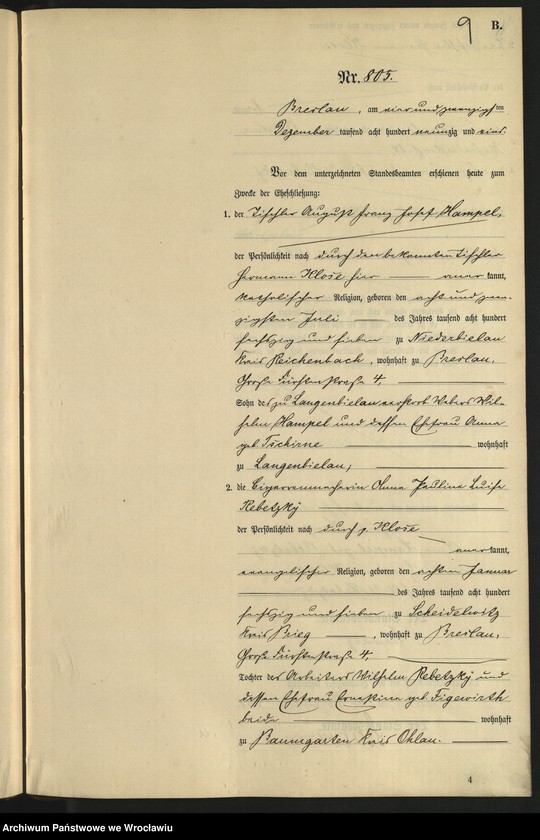 9 B.
Nr. 805.
Breslau, am vier und zwanzigsten
Dezember tausend acht hundert neunzig und vier
Vor dem unterzeichneten Standesbeamten erschienen heute zum
Zwecke der Eheschließung:
1. der Tischler August Franz Josef Hampel,
der Persönlichkeit nach durch den bekannten Tischler
Hermann Klose hier anerkannt,
katholischer Religion, geboren den acht und zwan-
zigsten Juli des Jahres tausend acht hundert
sechszig und sieben zu Niederbielau
Kreis Reichenbach, wohnhaft zu Breslau,
Große Fürstenstraße 4,
Sohn des zu Langenbielau verstorb. Webers Wil-
helm Hampel und dessen Ehefrau Anna
geb. Tschirne wohnhaft
zu Langenbielau;
2. die Cigarrenmacherin Anna Pauline Luise
Rebetzky
der Persönlichkeit nach durch p. Klose
anerkannt,
evangelischer Religion, geboren den achten Januar
des Jahres tausend acht hundert
sechszig und sieben zu Scheidelwitz
Kreis Brieg, wohnhaft zu Breslau,
Große Fürstenstraße 4,
Tochter des Arbeiters Wilhelm Rebetzky und
dessen Ehefrau Ernestine geb. Figewirth
beide wohnhaft
zu Baumgarten Kreis Ohlau.
4
Archiwum Państwowe we Wrocławiu